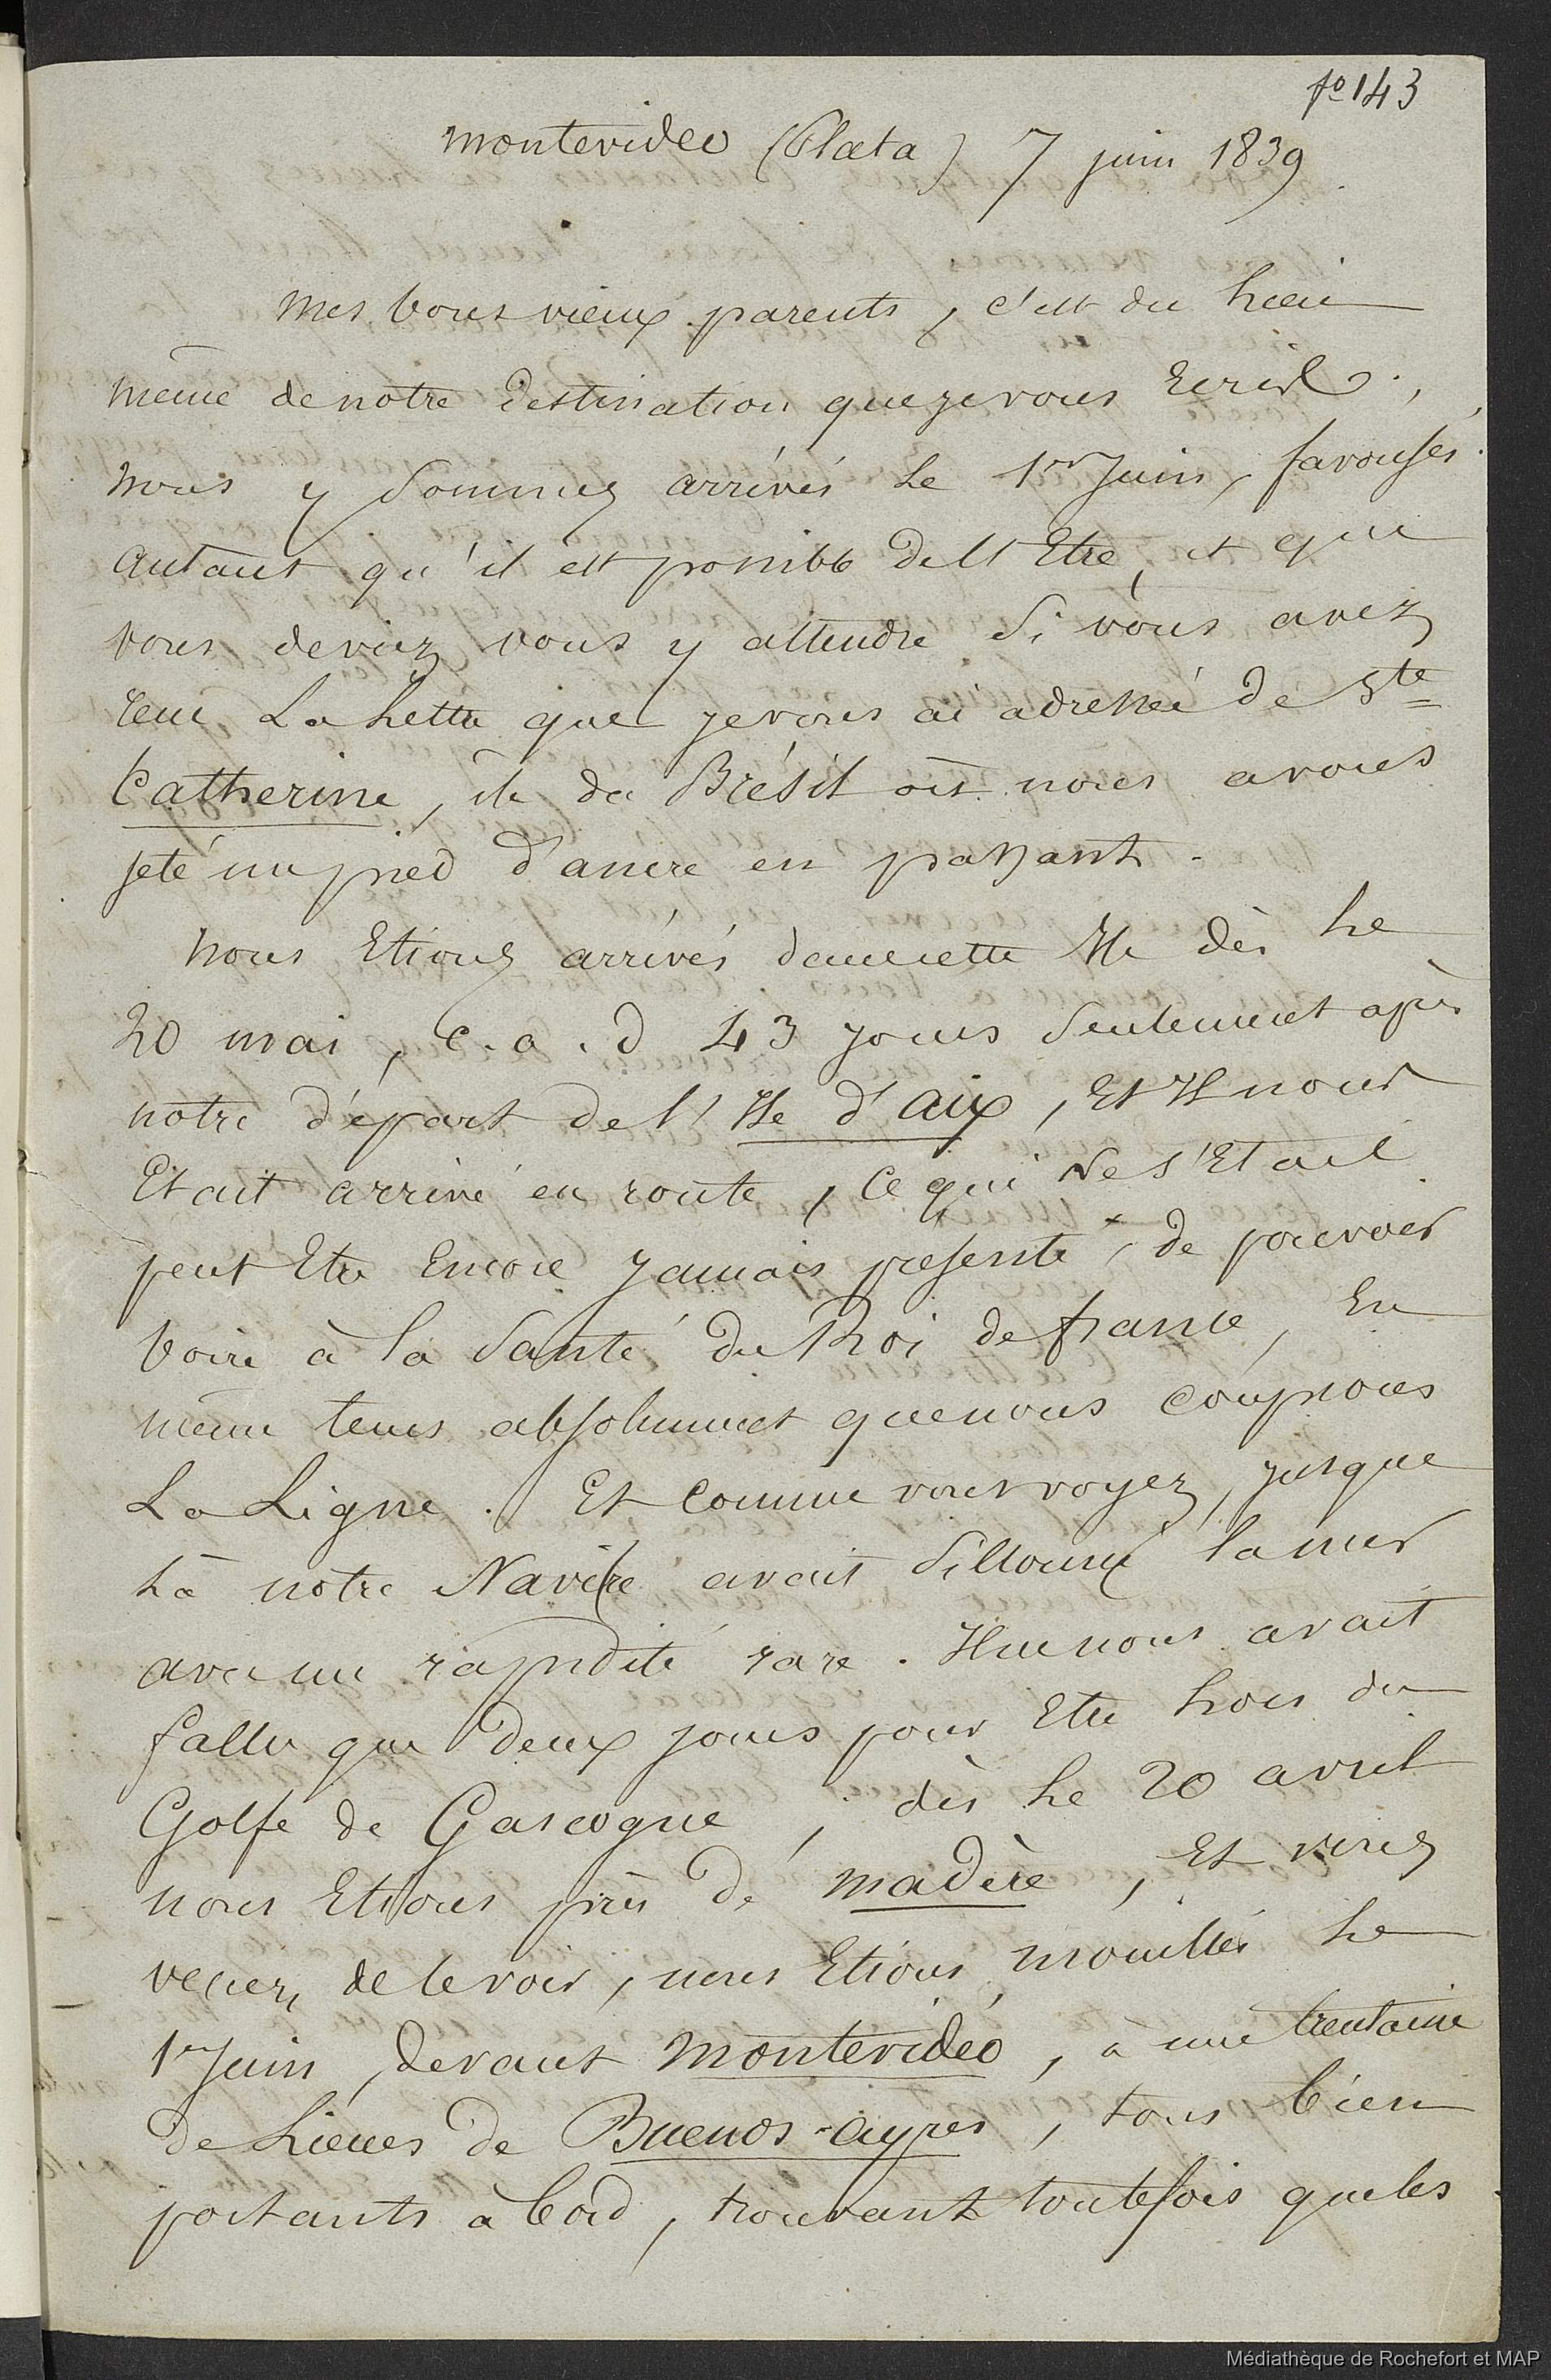 fo 143
Montevideo (Plata) 7 juin 1839
Mes bons vieux parents, c'est du lieu
même de notre destination que je vous Ecris,
nous y sommes arrivés le 1er Juin, favorisés
autant qu'il est possible de l'Etre, et que
vous deviez vous y attendre si vous avez
reçu La Lettre que je vous ai adressée de Ste
Catherine, île du Brésil où nous avons
jeté un pied d'ancre en passant.
Nous Etions arrivés dans cette Ile dès le
20 mai, c.a.d 43 jours seulement après
notre départ de l'Ile d'aix, Et Il nous
Etait arrivé en route, ce qui Ne s'Etait
peut Etre Encore jamais présenté, de pouvoir
boire à la Santé du Roi de france, En
même tems absolument que nous coupions
La Ligne. Et comme vous voyez, jusque
Là notre Navire avait sillonné la mer
avec une rapidité rare. Il ne nous avait
fallu que deux jours pour Etre hors du
Golfe de Gascogne, dès le 20 avril
nous Etions près de Madère, Et vous
venez de le voir, nous Etions mouillés le
1er Juin, devant Montevidéo, à une trentaine
de Lieues de Buenos-ayres, tous bien
portants à bord, trouvant toutefois que les
Médiathèque de Rochefort et MAP